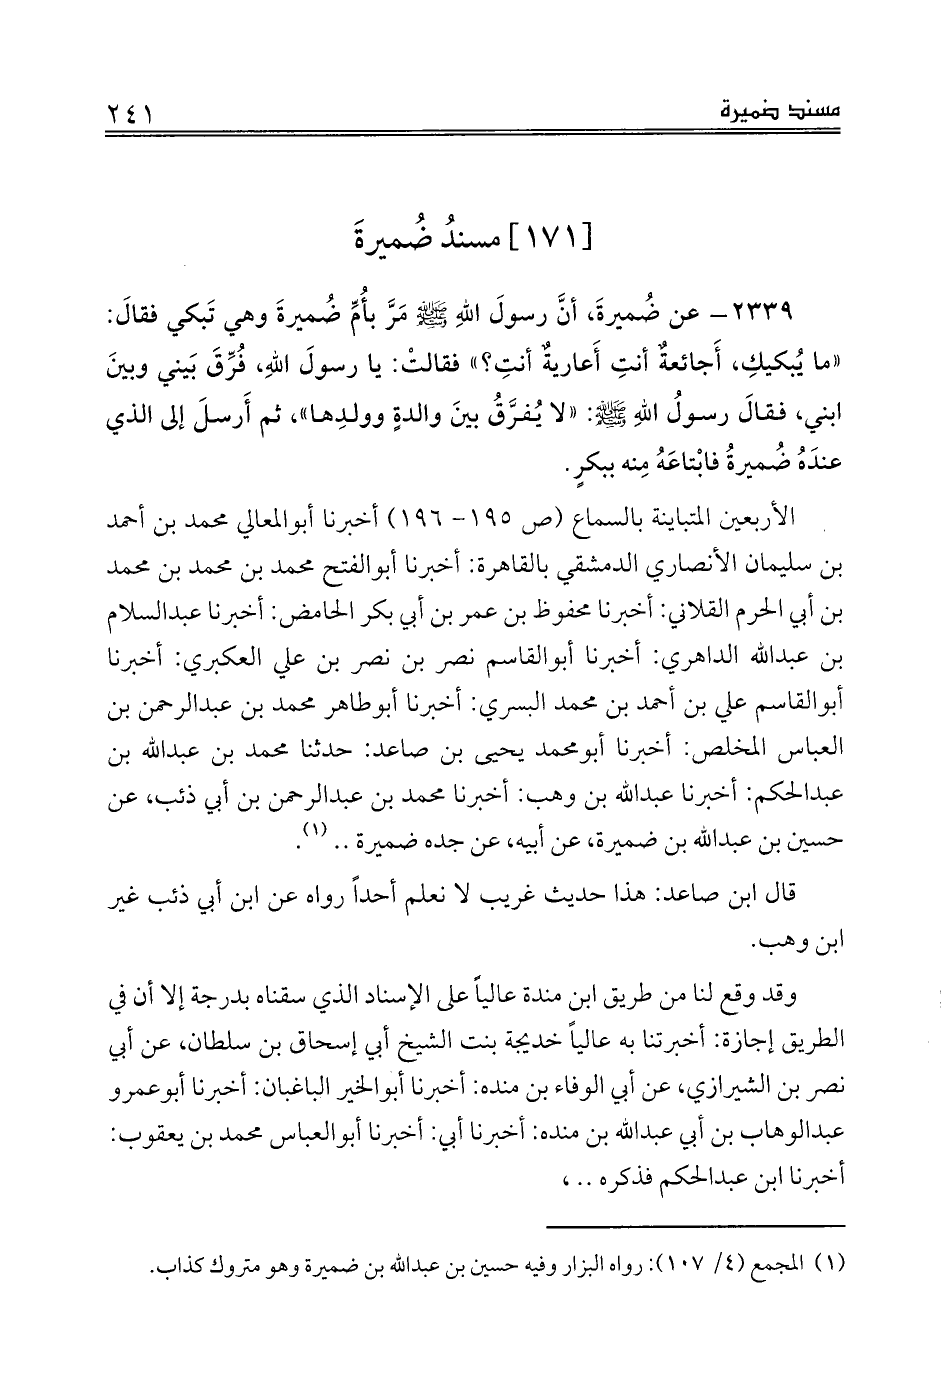 مسند ضميرة ٢٤١
[١٧١] مسندُ ضُميرةَ
٢٣٣٩– عن ضُميرةَ، أنَّ رسولَ اللهِ ﷺ مَرَّ بأُمِّ ضُميرةَ وهي تَبكي فقالَ:
«ما يُبكيكِ، أَجائعةٌ أنتِ أَعاريةٌ أنتِ؟» فقالتْ: يا رسولَ اللهِ، فُرِّقَ بَيني وبينَ
ابني، فقالَ رسولُ اللهِ ﷺ: «لا يُفرَّقُ بينَ والدةٍ وولدِها»، ثم أَرسلَ إلى الذي
عندَهُ ضُميرةُ فابْتاعَهُ مِنه ببكرٍ.
الأربعين المتباينة بالسماع (ص ١٩٥– ١٩٦) أخبرنا أبوالمعالي محمد بن أحمد
بن سليمان الأنصاري الدمشقي بالقاهرة: أخبرنا أبوالفتح محمد بن محمد بن محمد
بن أبي الحرم القلاني: أخبرنا محفوظ بن عمر بن أبي بكر الحامض: أخبرنا عبدالسلام
بن عبدالله الداهري: أخبرنا أبوالقاسم نصر بن نصر بن علي العكبري: أخبرنا
أبوالقاسم علي بن أحمد بن محمد البسري: أخبرنا أبوطاهر محمد بن عبدالرحمن بن
العباس المخلص: أخبرنا أبومحمد يحيى بن صاعد: حدثنا محمد بن عبدالله بن
عبدالحكم: أخبرنا عبدالله بن وهب: أخبرنا محمد بن عبدالرحمن بن أبي ذئب، عن
حسين بن عبدالله بن ضميرة، عن أبيه، عن جده ضميرة .. (١).
قال ابن صاعد: هذا حديث غريب لا نعلم أحداً رواه عن ابن أبي ذئب غير
ابن وهب.
وقد وقع لنا من طريق ابن مندة عالياً على الإسناد الذي سقناه بدرجة إلا أن في
الطريق إجازة: أخبرتنا به عالياً خديجة بنت الشيخ أبي إسحاق بن سلطان، عن أبي
نصر بن الشيرازي، عن أبي الوفاء بن منده: أخبرنا أبوالخير الباغبان: أخبرنا أبوعمرو
عبدالوهاب بن أبي عبدالله بن منده: أخبرنا أبي: أخبرنا أبوالعباس محمد بن يعقوب:
أخبرنا ابن عبدالحكم فذكره .. ،
(١) المجمع (٤/ ١٠٧): رواه البزار وفيه حسين بن عبدالله بن ضميرة وهو متروك كذاب.